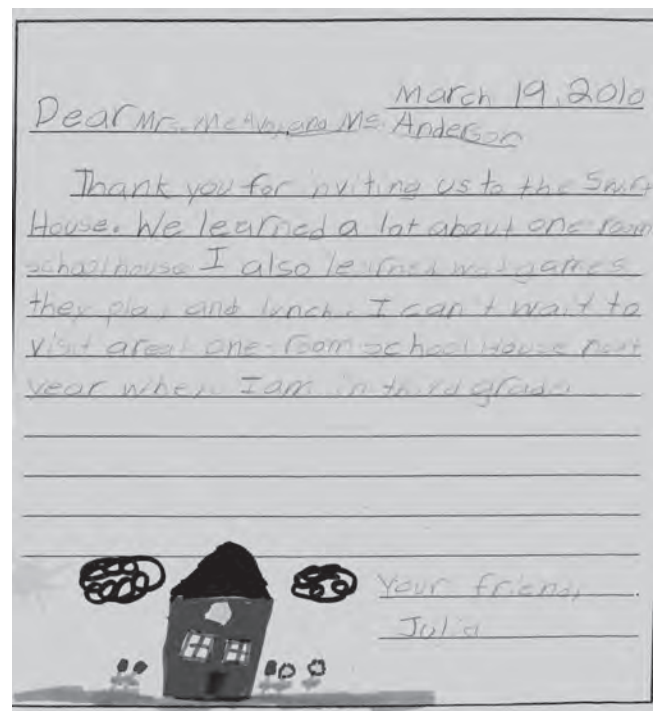 March 19, 2010
Dear Mrs. McAvoy and Ms. Anderson
Thank you for inviting us to the Swift
House. We learned a lot about one room
schoolhouse I also learned wat games
they play and lunch. I can't wait to
visit a real one-room schoolhouse next
year when I am in third grade.
Your friend,
Julia